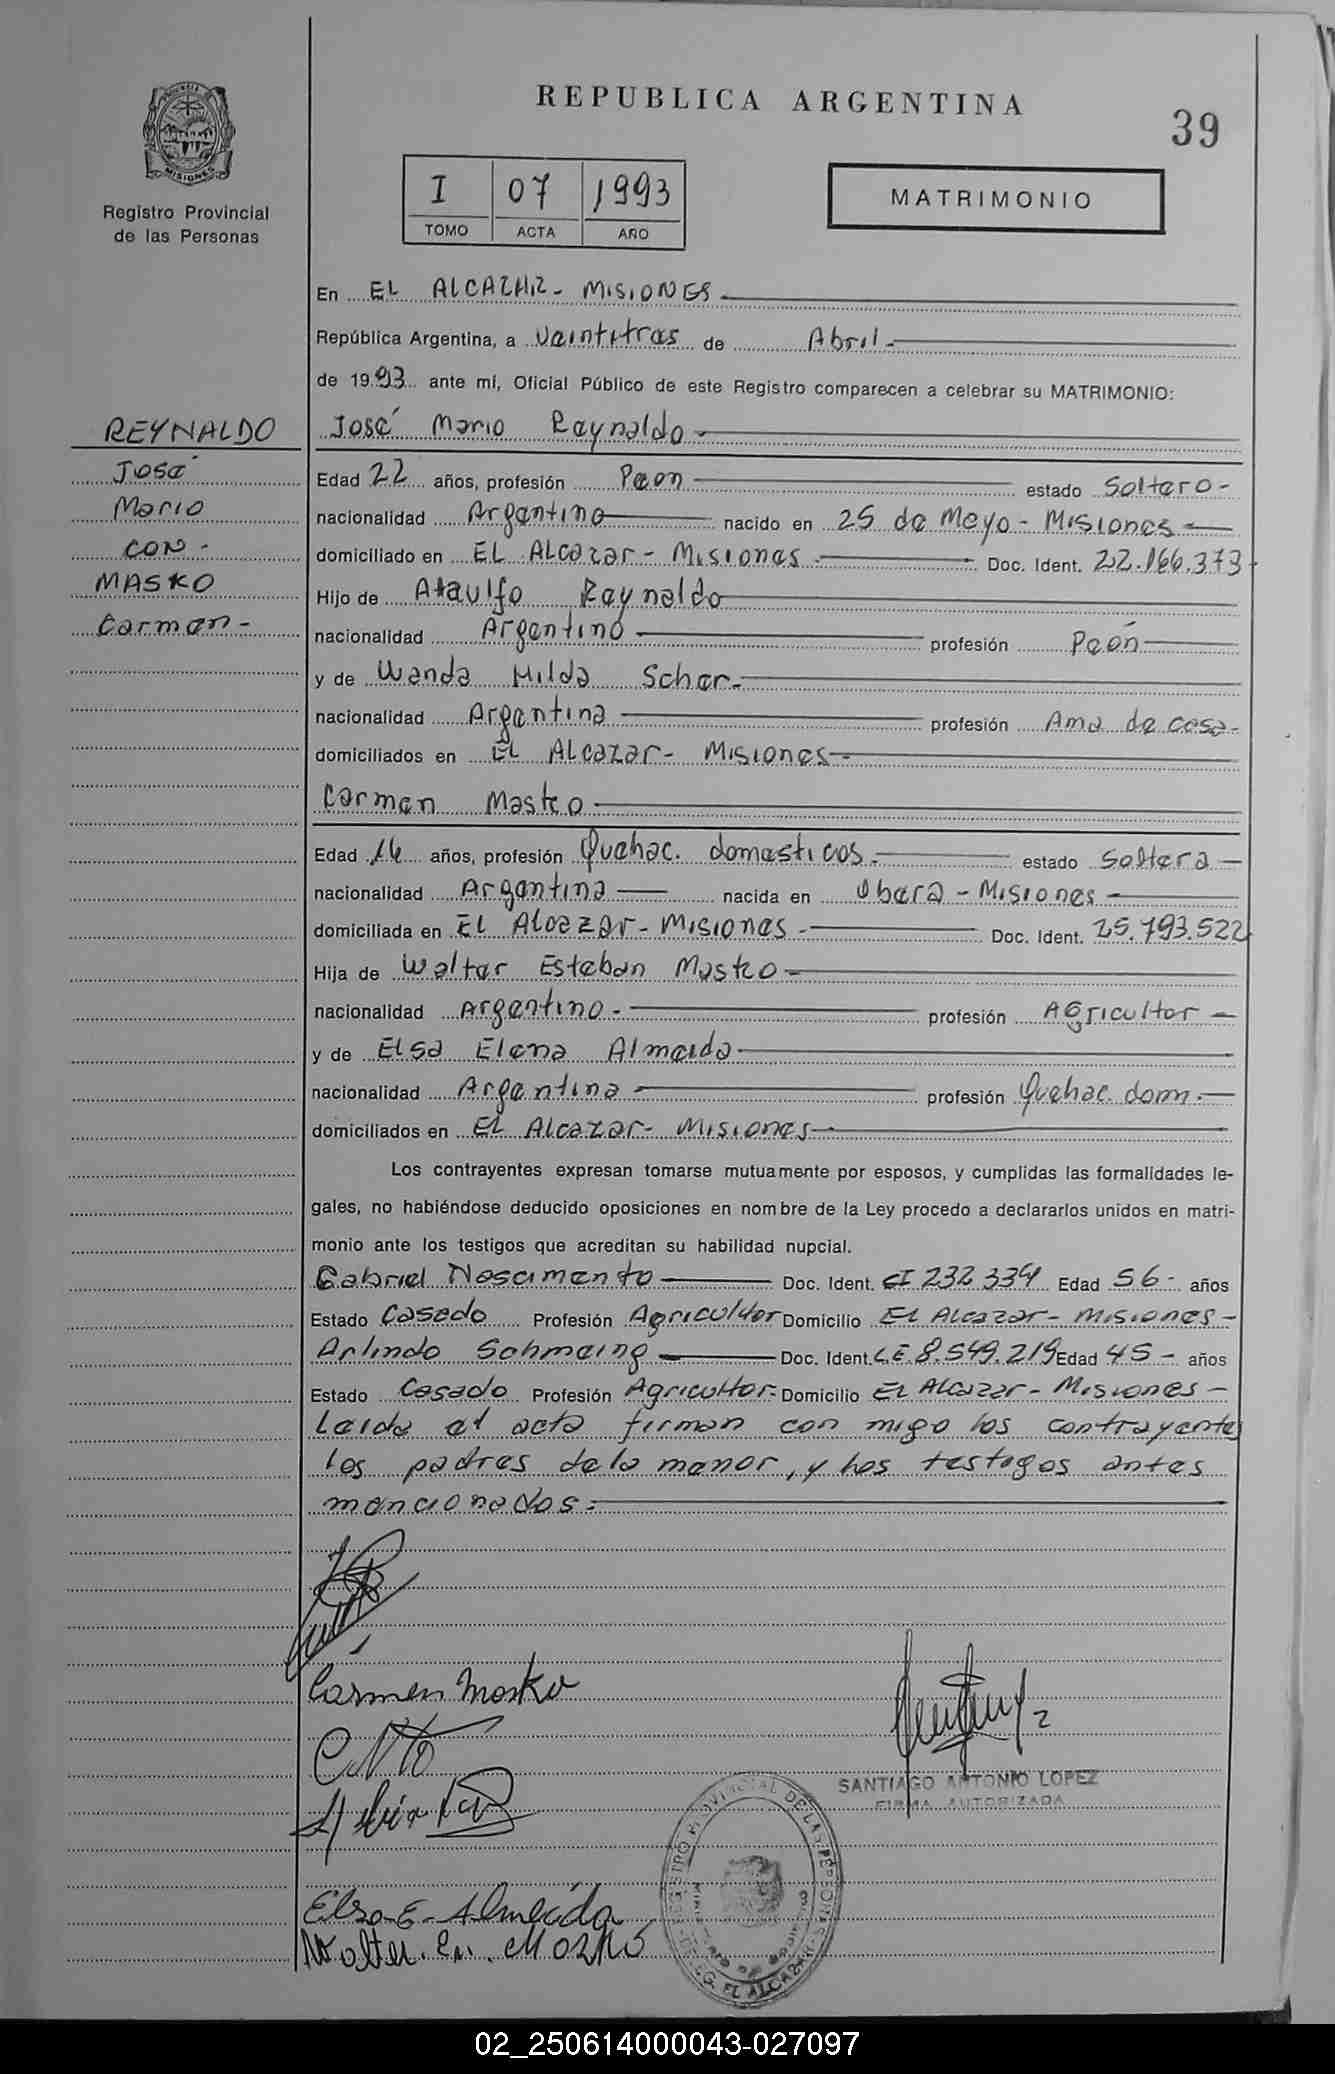 REPUBLICA ARGENTINA
39
MISIONES
Registro Provincial
de las Personas
I 07 1993
TOMO ACTA AÑO
MATRIMONIO
En EL ALCAZAR - MISIONES
República Argentina, a Veintitres de Abril.
de 1993 ante mí, Oficial Público de este Registro comparecen a celebrar su MATRIMONIO:
REYNALDO
José
Mario
CON -
MASKO
Carmen -
José Mario Reynaldo
Edad 22 años, profesión Peon estado Soltero -
nacionalidad Argentino nacido en 25 de Mayo - Misiones
domiciliado en EL Alcazar - Misiones Doc. Ident. 22.166.373
Hijo de Ataulfo Reynaldo
nacionalidad Argentino profesión Peón
y de Wanda Hilda Scher.
nacionalidad Argentina profesión Ama de casa -
domiciliados en EL Alcazar - Misiones
Carmen Masko
Edad 16 años, profesión Quehac. domesticos. estado Soltera
nacionalidad Argentina nacida en Obera - Misiones
domiciliada en EL Alcazar - Misiones - Doc. Ident. 25.793.522
Hija de Walter Esteban Masko
nacionalidad Argentino. profesión AGricultor -
y de Elsa Elena Almeida
nacionalidad Argentina profesión Quehac. dom.
domiciliados en EL Alcazar - Misiones
Los contrayentes expresan tomarse mutuamente por esposos, y cumplidas las formalidades le-
gales, no habiéndose deducido oposiciones en nombre de la Ley procedo a declararlos unidos en matri-
monio ante los testigos que acreditan su habilidad nupcial.
Gabriel Nascimento Doc. Ident. CI 232.334 Edad 56 - años
Estado Casado Profesión Agricultor Domicilio El Alcazar - Misiones -
Arlindo Schmeing Doc. Ident. L.E 8.549.219 Edad 45 - años
Estado Casado Profesión Agricultor Domicilio El Alcazar - Misiones -
Leida el acta firman con migo los contrayentes
los padres de la menor, y los testigos antes
mencionados.
Carmen Masko
SANTIAGO ANTONIO LOPEZ
FIRMA AUTORIZADA
REGISTRO PROVINCIAL DE LAS PERSONAS
DELEG. EL ALCAZAR
Elsa E. Almeida
Walter. Es. Masko
02_250614000043-027097